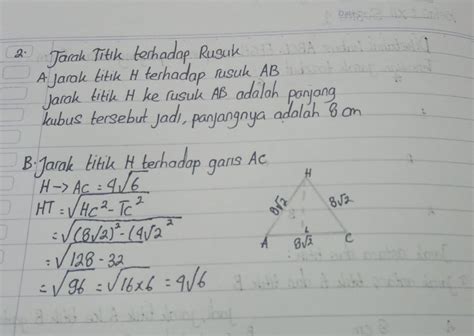 2. Jarak Titik terhadap Rusuk
A Jarak titik H terhadap rusuk AB
Jarak titik H ke rusuk AB adalah panjang
kubus tersebut jadi, panjangnya adalah 8 cm
B. Jarak titik H terhadap garis AC
H → AC = 4√6
HT = √HC² - TC²
= √(8√2)² - (4√2²
= √128 - 32
= √96 = √16×6 = 4√6
H
8√2 8√2
A 8√2 C